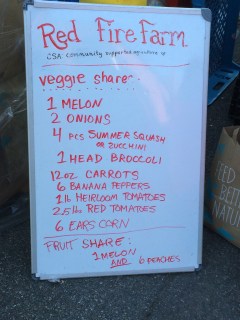 Red Fire Farm
CSA community supported agriculture
veggie share
1 MELON
2 ONIONS
4 PCS SUMMER SQUASH
OR ZUCCHINI
1 HEAD BROCCOLI
12 oz CARROTS
6 BANANA PEPPERS
1 lb HEIRLOOM TOMATOES
2.5 lb RED TOMATOES
6 EARS CORN
FRUIT SHARE:
1 MELON
AND 6 PEACHES